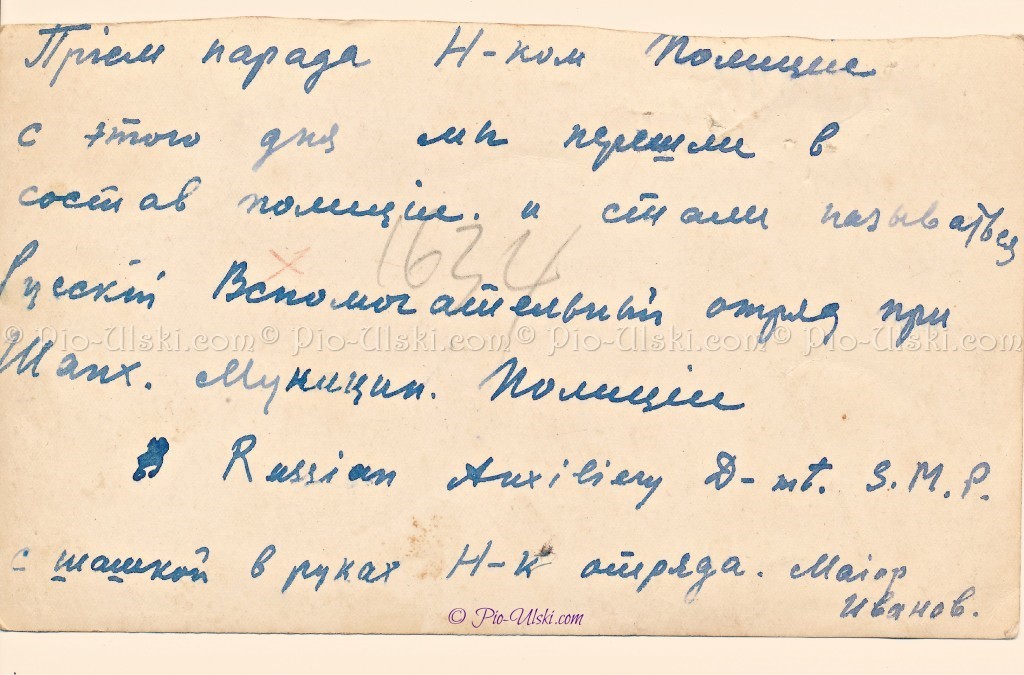 Пріем парада Н-ком Полиціи
с этого дня мы перешли в
состав полиціи. и стали называться
1634
Русскій Вспомогательный отряд при
© Pio-Ulski.com © Pio-Ulski.com © Pio-Ulski.com © Pio-Ulski.com
Шанх. Муницип. Полиціи
Russian Auxiliery D-mt. S.M.P.
с шашкой в руках Н-к отряда. Маіор
Иванов.
© Pio-Ulski.com